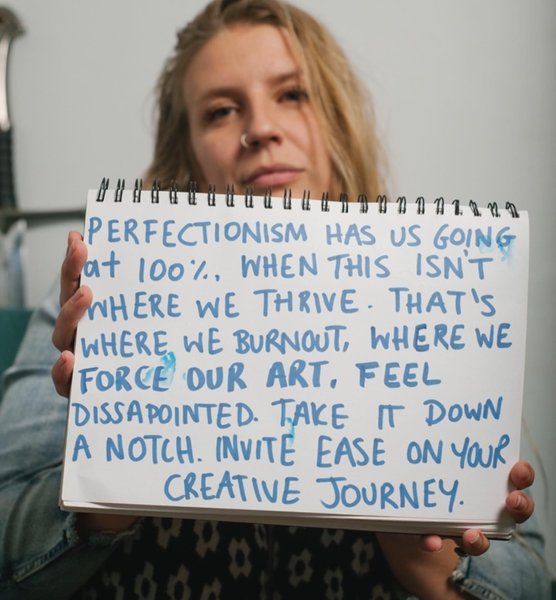 PERFECTIONISM HAS US GOING
at 100%, WHEN THIS ISN'T
WHERE WE THRIVE. THAT'S
WHERE WE BURNOUT, WHERE WE
FORCE OUR ART, FEEL
DISSAPOINTED. TAKE IT DOWN
A NOTCH. INVITE EASE ON YOUR
CREATIVE JOURNEY.